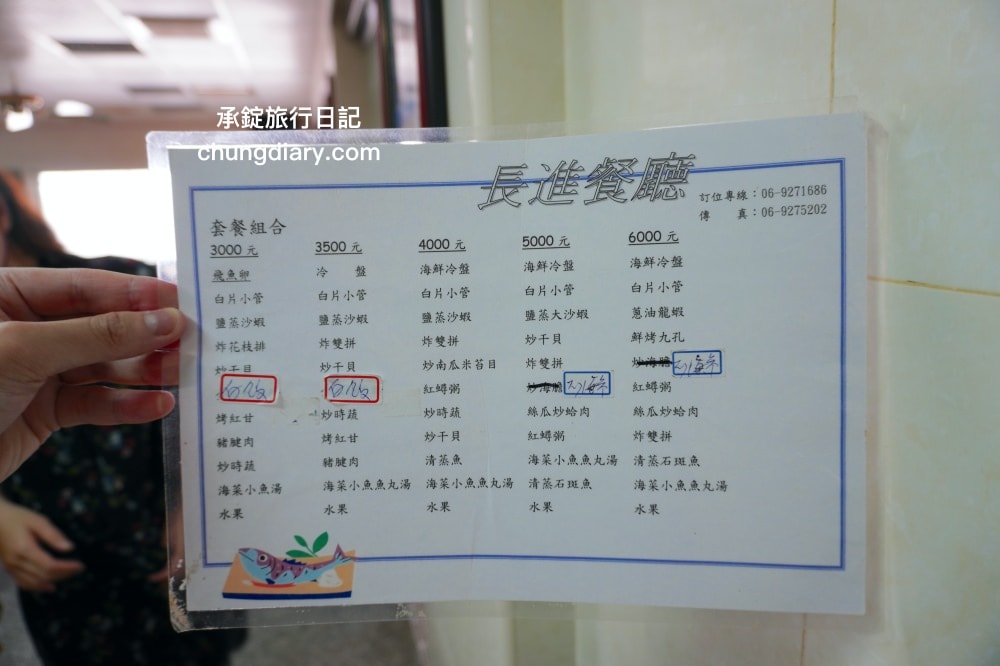 承錠旅行日記
chungdiary.com
長進餐廳
訂位專線：06-9271686
傳　　真：06-9275202
套餐組合
3000 元
飛魚卵
白片小管
鹽蒸沙蝦
炸花枝排
炒干貝
白飯
烤紅甘
豬腱肉
炒時蔬
海菜小魚湯
水果
3500 元
冷　　盤
白片小管
鹽蒸沙蝦
炸雙拼
炒干貝
白飯
炒時蔬
烤紅甘
豬腱肉
海菜小魚魚丸湯
水果
4000 元
海鮮冷盤
白片小管
鹽蒸沙蝦
炸雙拼
炒南瓜米苔目
紅蟳粥
炒時蔬
炒干貝
清蒸魚
海菜小魚魚丸湯
水果
5000 元
海鮮冷盤
白片小管
鹽蒸大沙蝦
炒干貝
炸雙拼
炒海膽
絲瓜炒蛤肉
紅蟳粥
海菜小魚魚丸湯
清蒸石斑魚
水果
6000 元
海鮮冷盤
白片小管
蔥油龍蝦
鮮烤九孔
炒海膽
紅蟳粥
絲瓜炒蛤肉
炸雙拼
清蒸石斑魚
海菜小魚魚丸湯
水果